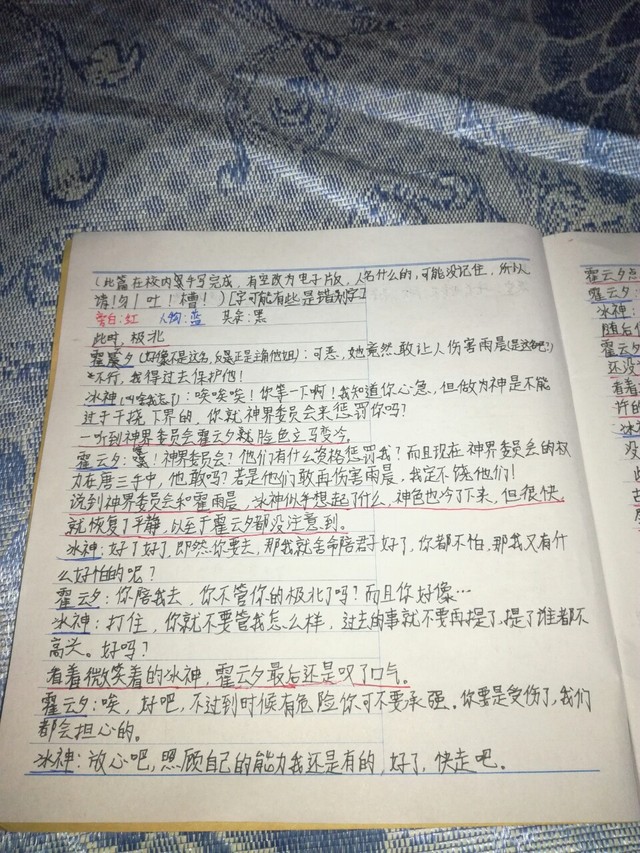 (此篇在校内要手写完成，有空改为电子版，人名什么的，可能没记住，所以
请！勿！吐！槽！)[字可能有些是错别字]
旁白:红 人物:蓝 其实:黑
此时，极北
霍云夕(好像不是这名，反正是主角他姐)：可恶，她竟然敢让人伤害雨晨(是这吧?)
*不行，我得过去保护他!
冰神(叫啥我忘了)：唉唉唉！你等一下啊！我知道你心急，但做为神是不能
过于干挠下界的，你就神界委员会来惩罚你吗？
一听到神界委员会霍云夕就脸色立马变冷。
霍云夕：嚄！神界委员会？他们有什么资格惩罚我？而且现在神界委员会的权
力在唐三手中，他敢吗？若是他们敢再伤害雨晨，我定不饿他们！
说到神界委员会和霍雨晨，冰神似乎想起了什么，神色也冷了下来，但很快。
就恢复了平静，以至于霍云夕都没注意到。
冰神：好了好了，即然你要去，那我就舍命陪君子好了，你都不怕，那我又有什
么好怕的呢？
霍云夕：你陪我去，你不管你的极北了吗？而且你好像…
冰神：打住，你就不要管我怎么样，过去的事就不要再提了，提了谁都不
高头。好吗？
看着微笑着的冰神，霍云夕最后还是叹了口气。
霍云夕：唉，好吧，不过到时候有危险你可不要承强。你要是受伤了，我们
都会担心的。
冰神：放心吧，照顾自己的能力我还是有的，好了，快走吧。
霍云夕
冰神：
随后
霍云夕
还没
看着
许的
冰神